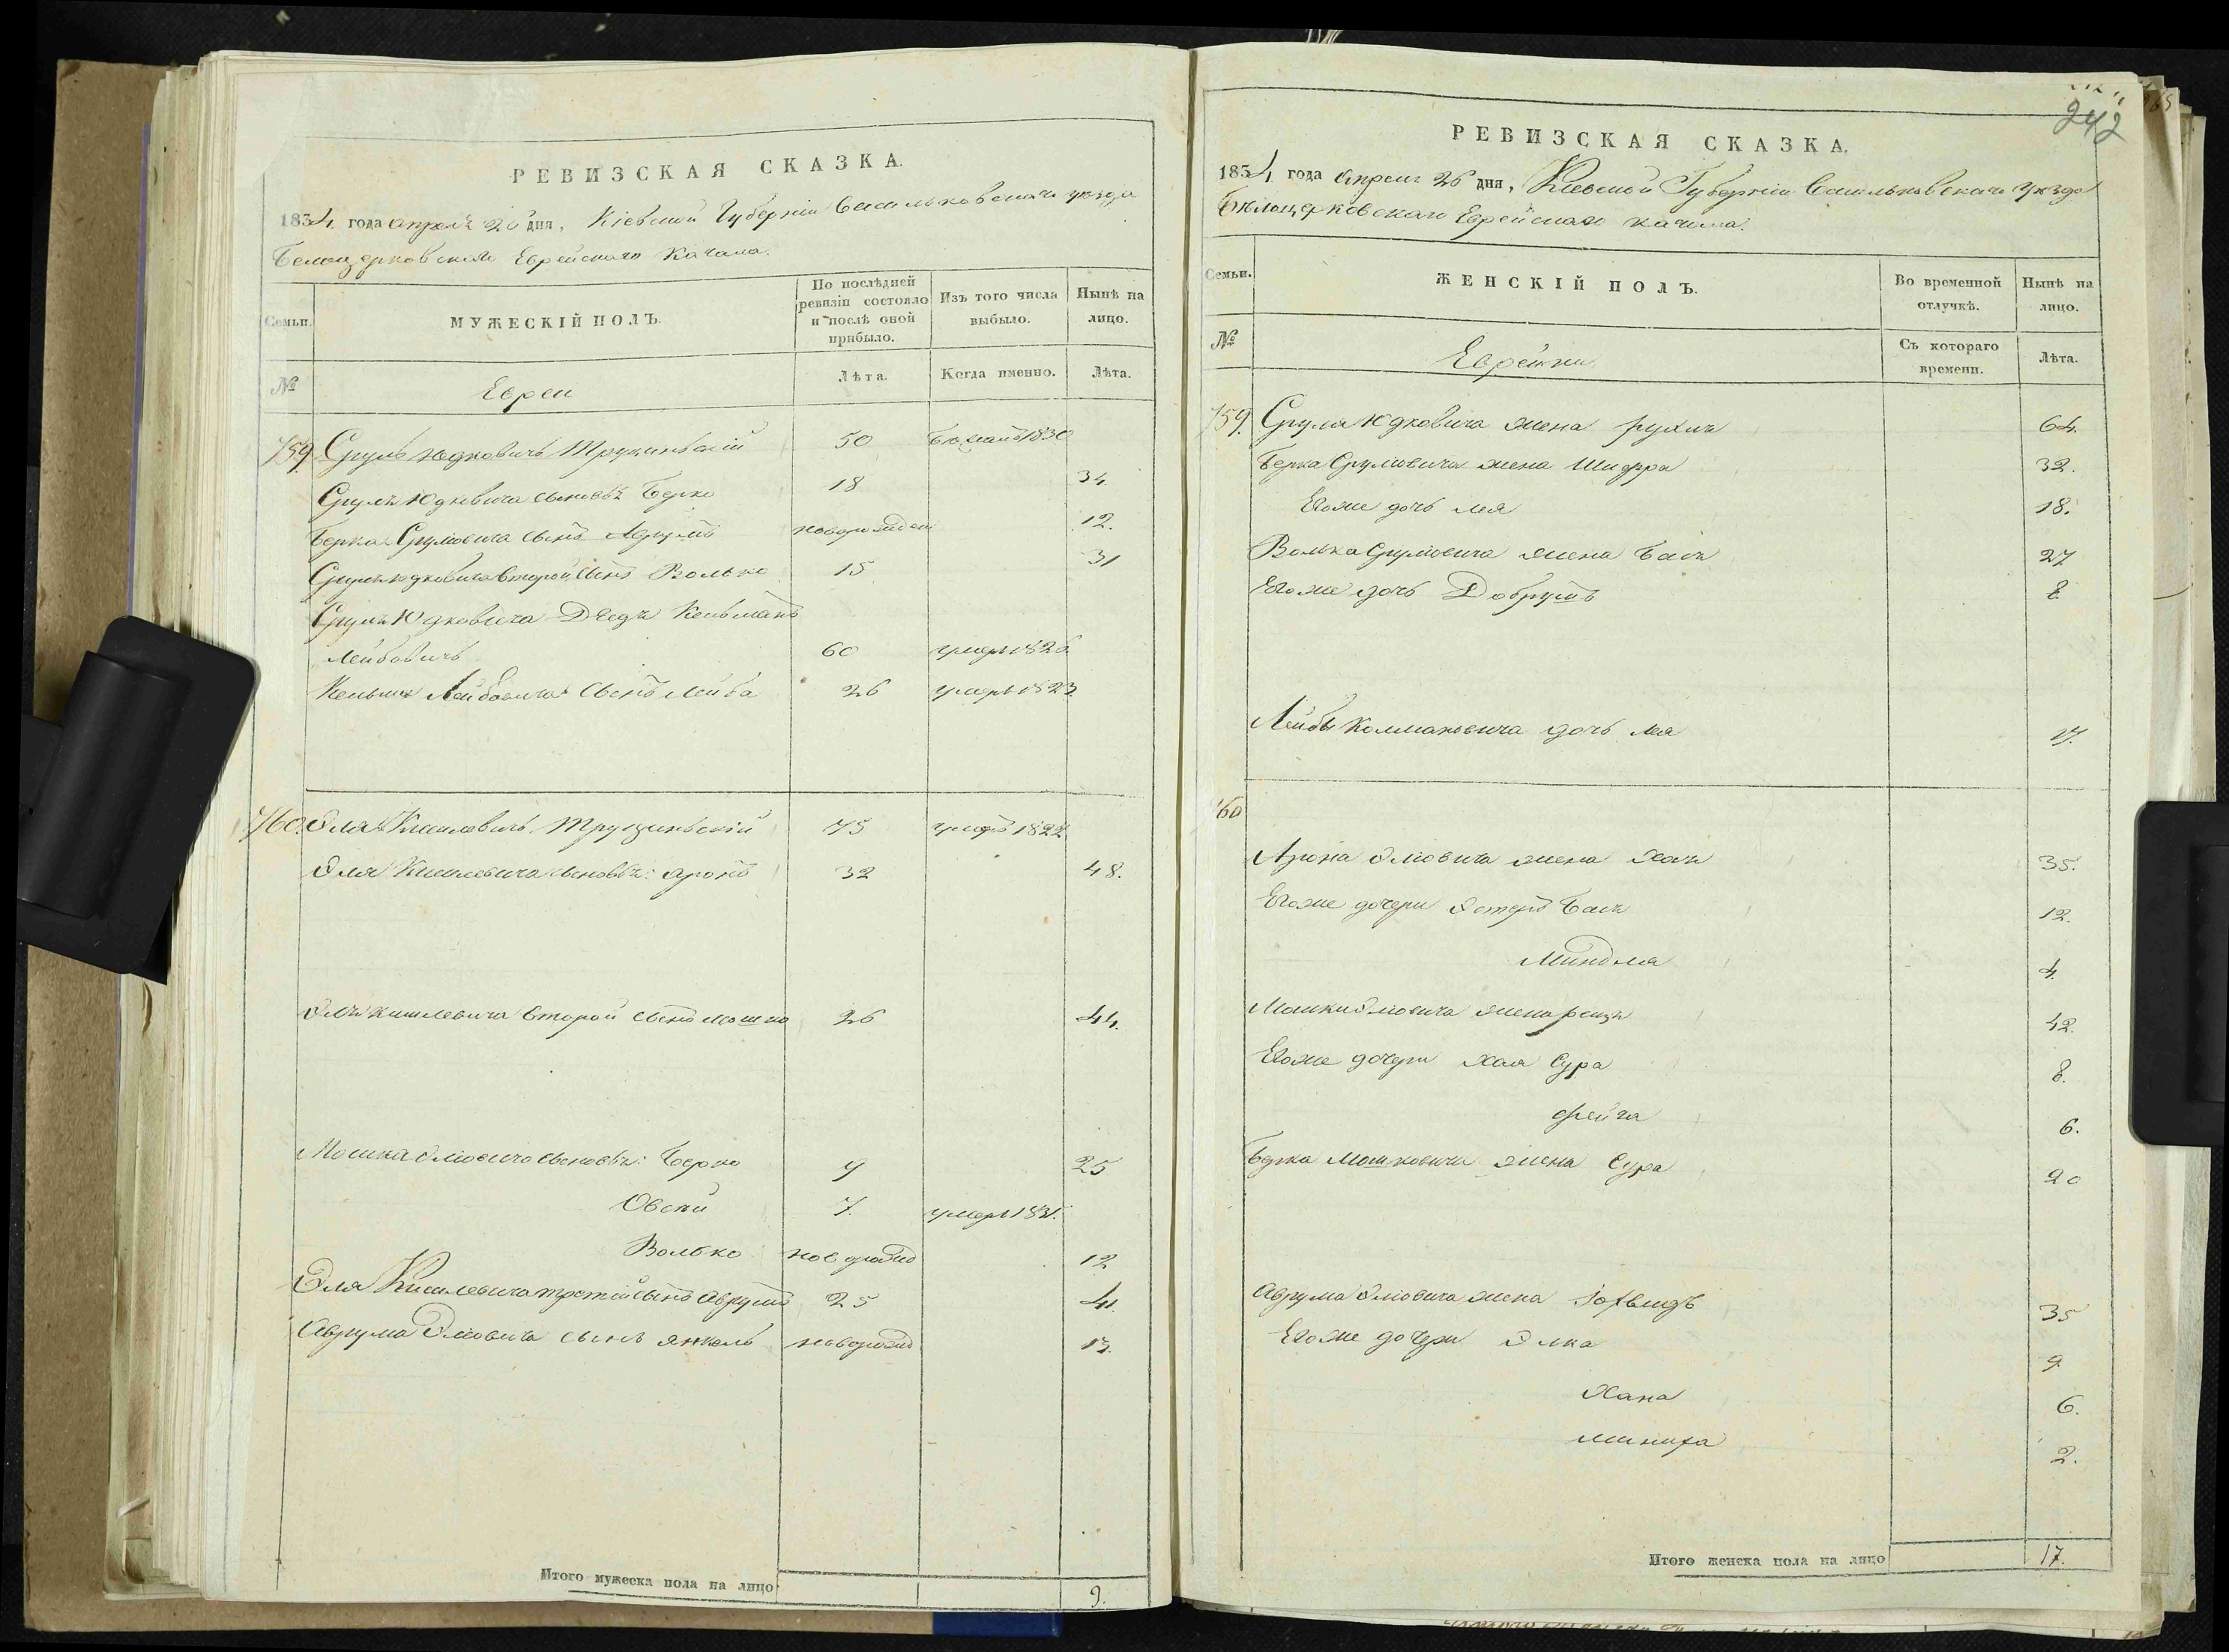 РЕВИЗСКАЯ СКАЗКА.
1834 года апреля 26 дня, Кіевской Губерніи Васильковскаго уезда
Белоцерковского Еврейского Кагала.
Семьи.
МУЖЕСКІЙ ПОЛЪ.
По послѣдней ревизіи состояло и послѣ оной прибыло.
Изъ того числа выбыло.
Нынѣ на лицо.
№
Евреи
Лѣта.
Когда именно.
Лѣта.
759. Сруль Юдковичъ 50 1830
Сруля Юдковича сыновья Берко 18 34.
Берка Срулювича сынъ Аврумъ новорожден 12.
Сруля Юдковича второй сынъ Волько 15 31
Сруля Юдковича Дедъ Кельманъ
Лейбовичъ 60 умеръ 1826.
Кельмана Лейбовича сынъ Лейба 26 умеръ 1823.
760. Эля Кисилевичъ 75 умеръ 1822
Эля Кисилевича сыновья: Аронъ 32 48.
Эля Кисилевича второй сынъ Мошко 26 44.
Мошка Элювича сыновья: Берко 9 25
Овсей 7. умеръ 1831.
Волько новорожд 12
Эля Кисилевича третій сынъ Аврумъ 25 41.
Аврума Элювича сынъ Янкель новорожд 13.
Итого мужеска пола на лицо 9.
242
РЕВИЗСКАЯ СКАЗКА.
1834 года Апреля 26 дня, Кіевской Губерніи Васильковскаго уезда
Бѣлоцерковскаго Еврейскаго кагала.
Семьи.
ЖЕНСКІЙ ПОЛЪ.
Во временной отлучкѣ.
Нынѣ на лицо.
№
Еврейки
Съ котораго времени.
Лѣта.
759. Сруля Юдковича жена Рухля 64.
Берка Срулювича жена Шифра 32.
Егоже дочь Лея 18.
Волька Срулювича жена Бася 27
Егоже дочь Добрушъ 8
Лейбы Колмановича дочь Лея 17.
760
Арона Элювича жена Хая 35.
Егоже дочери Эстеръ Бася 12.
Миндля 4.
Мошки Элювича жена 42.
Егоже дочери Хая Сура 8.
Фейга 6.
Берка Мошковича жена Сура 20
Аврума Элювича жена Іохвидъ 35
Егоже дочери Элка 9
Хана 6.
Мениха 2.
Итого женска пола на лицо 17.